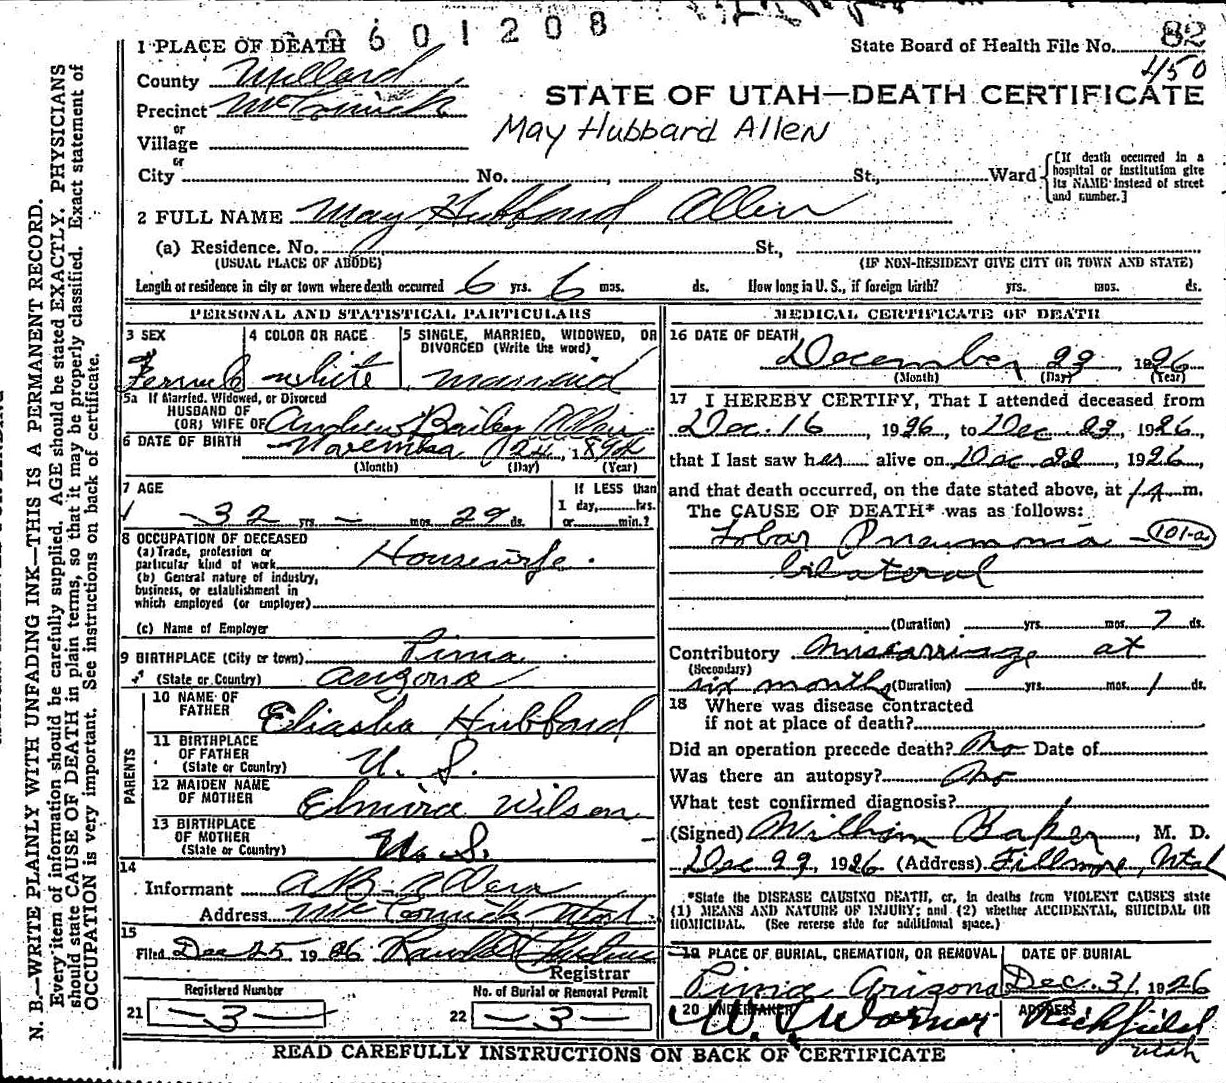 2601208
State Board of Health File No. 82
450
1 PLACE OF DEATH
County Millard
Precinct McCornick
or
Village
or
City No. , St., Ward
[If death occurred in a hospital or institution give its NAME instead of street and number.]
STATE OF UTAH—DEATH CERTIFICATE
May Hubbard Allen
2 FULL NAME May Hubbard Allen
(a) Residence. No. St.,
(USUAL PLACE OF ABODE) (IF NON-RESIDENT GIVE CITY OR TOWN AND STATE)
Length of residence in city or town where death occurred 6 yrs. 6 mos. ds. How long in U. S., if foreign birth? yrs. mos. ds.
PERSONAL AND STATISTICAL PARTICULARS
3 SEX
Female
4 COLOR OR RACE
white
5 SINGLE, MARRIED, WIDOWED, OR DIVORCED (Write the word)
married
5a If Married, Widowed, or Divorced
HUSBAND OF
(OR) WIFE OF Andrew Bailey Allen
6 DATE OF BIRTH November 24, 1894
(Month) (Day) (Year)
7 AGE
32 yrs. — mos. 29 ds.
If LESS than
1 day, hrs.
or min.?
8 OCCUPATION OF DECEASED
(a) Trade, profession or
particular kind of work Housewife.
(b) General nature of industry,
business, or establishment in
which employed (or employer)
(c) Name of Employer
9 BIRTHPLACE (City or town) Pima
(State or Country) Arizona
PARENTS
10 NAME OF
FATHER Eliasha Hubbard
11 BIRTHPLACE
OF FATHER
(State or Country) U. S.
12 MAIDEN NAME
OF MOTHER Elmira Wilson
13 BIRTHPLACE
OF MOTHER
(State or Country) U. S.
14
Informant A B Allen
Address McCornick Utah
15
Filed Dec 25 1926
Registrar
Registered Number
21 —3—
No. of Burial or Removal Permit
22 —3—
MEDICAL CERTIFICATE OF DEATH
16 DATE OF DEATH
December 23, 1926
(Month) (Day) (Year)
17 I HEREBY CERTIFY, That I attended deceased from
Dec. 16, 1926, to Dec 23, 1926,
that I last saw her alive on Dec 22, 1926,
and that death occurred, on the date stated above, at m.
The CAUSE OF DEATH* was as follows:
Lobar Pneumonia — 101-a
bilateral
(Duration) yrs. mos. 7 ds.
Contributory Miscarriage at
(Secondary)
six months (Duration) yrs. mos. 1 ds.
18 Where was disease contracted
if not at place of death?
Did an operation precede death? No Date of
Was there an autopsy? No
What test confirmed diagnosis?
(Signed) William Baker, M. D.
Dec 23, 1926 (Address) Fillmore, Utah
*State the DISEASE CAUSING DEATH, or, in deaths from VIOLENT CAUSES state
(1) MEANS AND NATURE OF INJURY; and (2) whether ACCIDENTAL, SUICIDAL OR
HOMICIDAL. (See reverse side for additional space.)
19 PLACE OF BURIAL, CREMATION, OR REMOVAL
Pima Arizona
DATE OF BURIAL
Dec. 31 1926
20 UNDERTAKER
Warner
ADDRESS
Richfield
Utah
READ CAREFULLY INSTRUCTIONS ON BACK OF CERTIFICATE
N. B.—WRITE PLAINLY WITH UNFADING INK—THIS IS A PERMANENT RECORD.
Every item of information should be carefully supplied. AGE should be stated EXACTLY. PHYSICIANS
should state CAUSE OF DEATH in plain terms, so that it may be properly classified. Exact statement of
OCCUPATION is very important. See instructions on back of certificate.